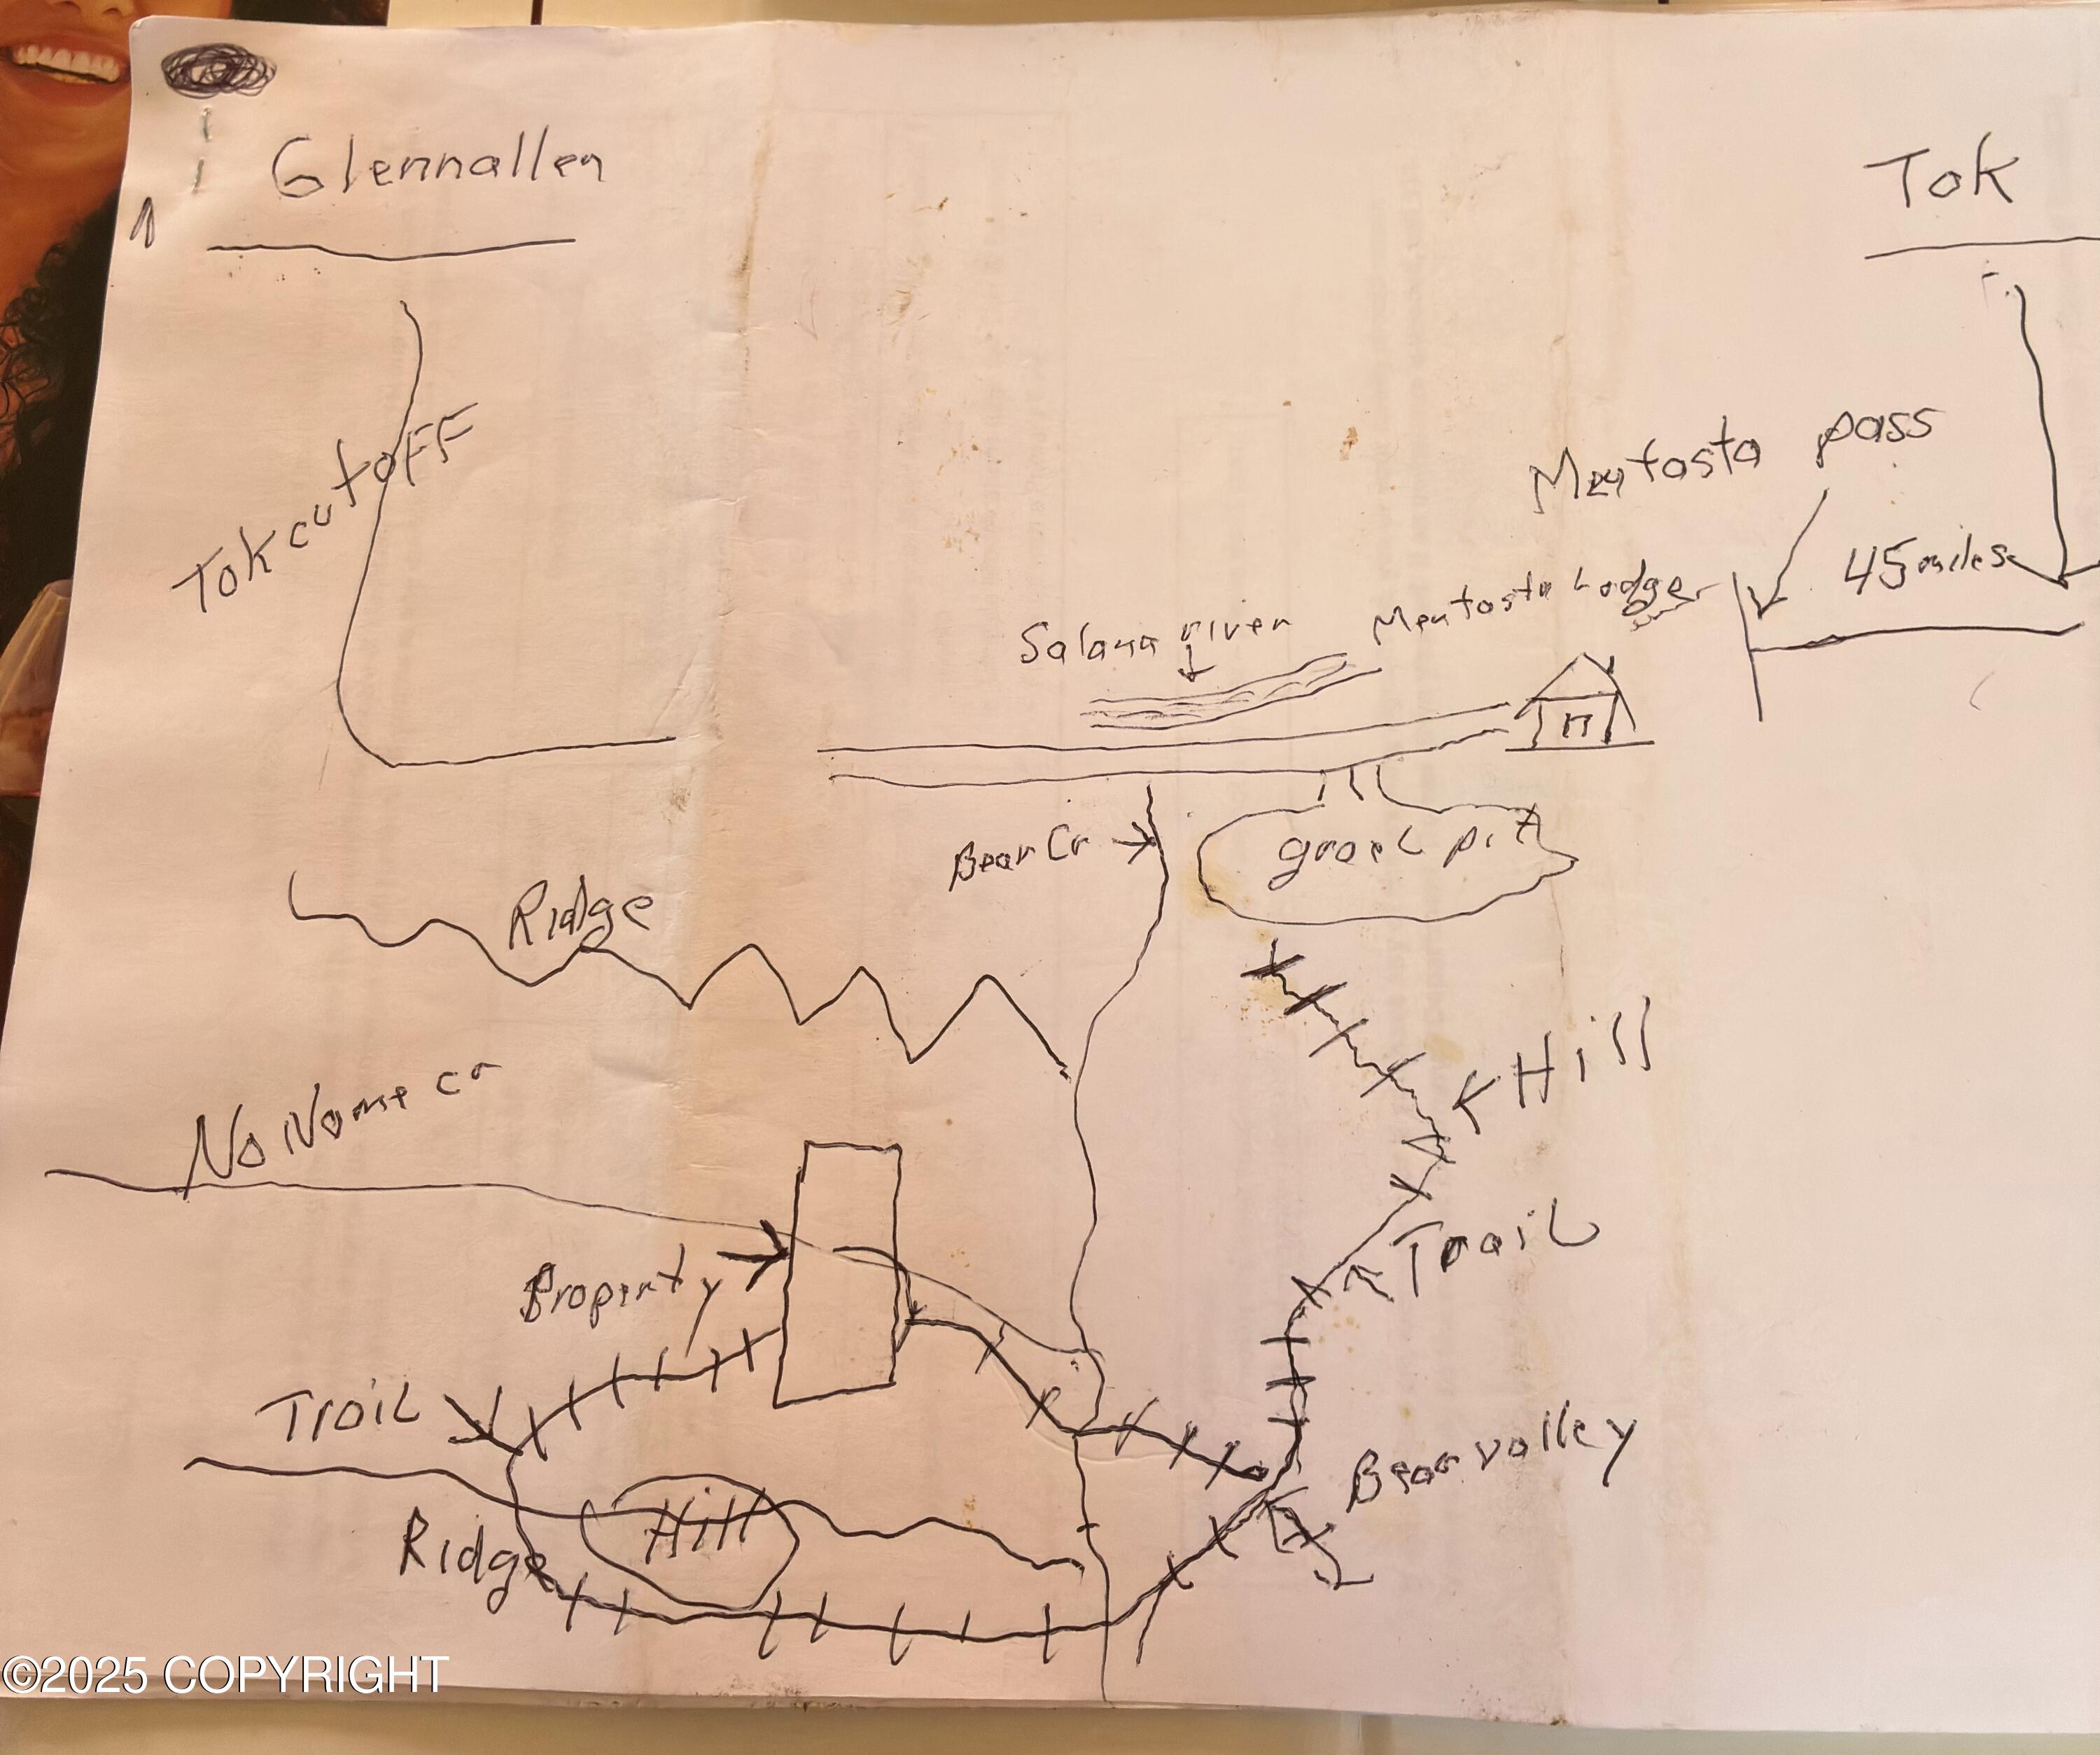 Glennallen
Tok
Tok cutoFF
Mentasta pass
45 miles
Mentasta Lodge
Salana river
Bear Cr
Ridge
K Hill
No Name cr
Property
Trail
Trail
Bear valley
Hill
Ridge
©2025 COPYRIGHT